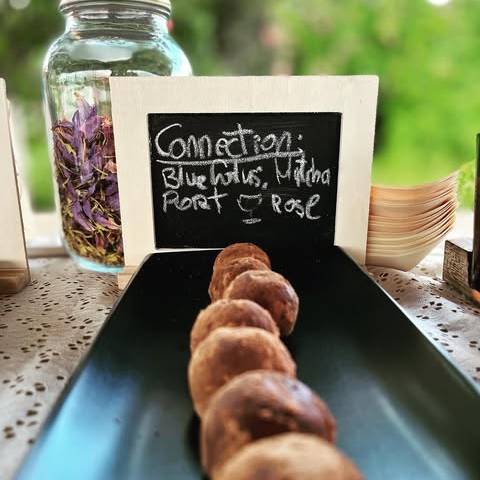 Connection:
Blue Lotus, Matcha
Port Rose